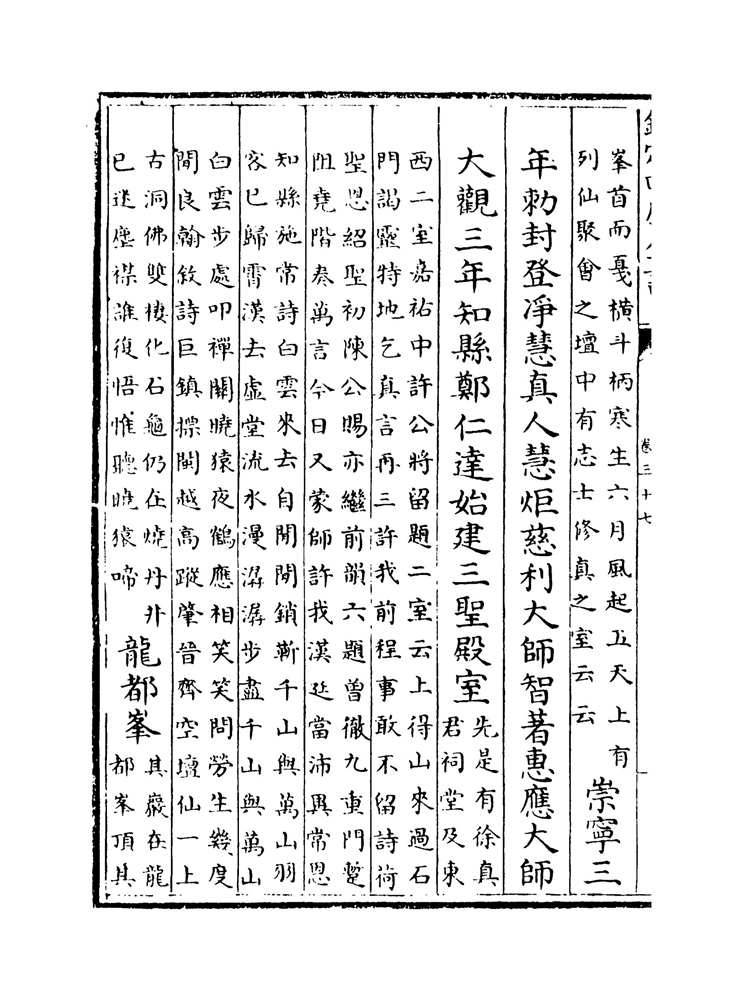 峯首而戛橫斗柄寒生六月風起五天上有
列仙聚會之壇中有志士修真之室云云
崇寧三
年勅封登淨慧真人慧炬慈利大師智著惠應大師
大觀三年知縣鄭仁達始建三聖殿室
先是有徐真
君祠堂及東
西二室嘉祐中許公將留題二室云上得山來過石
門謁靈特地乞真言再三許我前程事敢不留詩荷
聖恩紹聖初陳公賜亦繼前韻六題曾徹九重門蹔
阻堯階奏萬言今日又蒙師許我漢廷當沛異常恩
知縣施常詩白雲來去自閒閒鎖斷千山與萬山羽
客已歸霄漢去虛堂流水漫潺潺步盡千山與萬山
白雲步處叩禪關曉猿夜鶴應相笑笑問勞生幾度
閒良翰敘詩巨鎮摽閩越高蹤肇晉齊空壇仙一上
古洞佛雙棲化石龜仍在燒丹井
已迷塵襟誰復悟惟聽曉猿啼
龍都峯
其巖在龍
都峯頂其
卷三十七